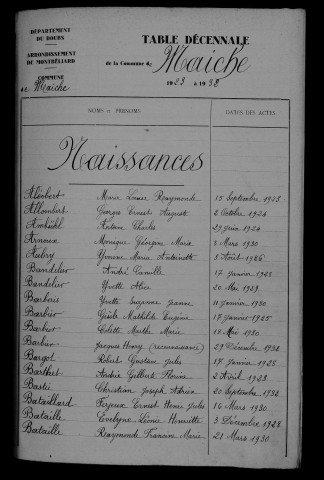 DÉPARTEMENT
DU DOUBS
ARRONDISSEMENT
DE MONTBÉLIARD
COMMUNE
de Maîche
TABLE DÉCENNALE
de la Commune de Maîche
1923 à 1932
NOMS et PRÉNOMS DATES DES ACTES
Naissances
Marie Louise Raymonde 15 Septembre 1928
Allombert Georges Ernest Auguste 2 Octobre 1924
Antoine Charles 29 Juin 1924
Arnoux Monique Georgette Marie 3 Mars 1930
Aubry Yvonne Marie Antoinette 5 Août 1926
Bandelier André Camille 17 Janvier 1923
Bandelier Yvette Alice 20 Mai 1929
Yvette Suzanne Jeanne 11 Janvier 1930
Barbier Gisèle Mathilde Eugénie 17 Janvier 1925
Barbier Colette Marthe Marie 14 Mai 1930
Jacques Henry (reconnaissance) 29 Décembre 1932
Robert Gustave Jules 17 Janvier 1928
Barthet Andrée Gilbert 2 Avril 1928
Christian Joseph Adrien 20 Septembre 1932
Bataillard Ernest Henri Jules 16 Mars 1930
Bataille Evelyne Léonie Henriette 3 Décembre 1928
Bataille Raymonde Francine Marie 21 Mars 1930